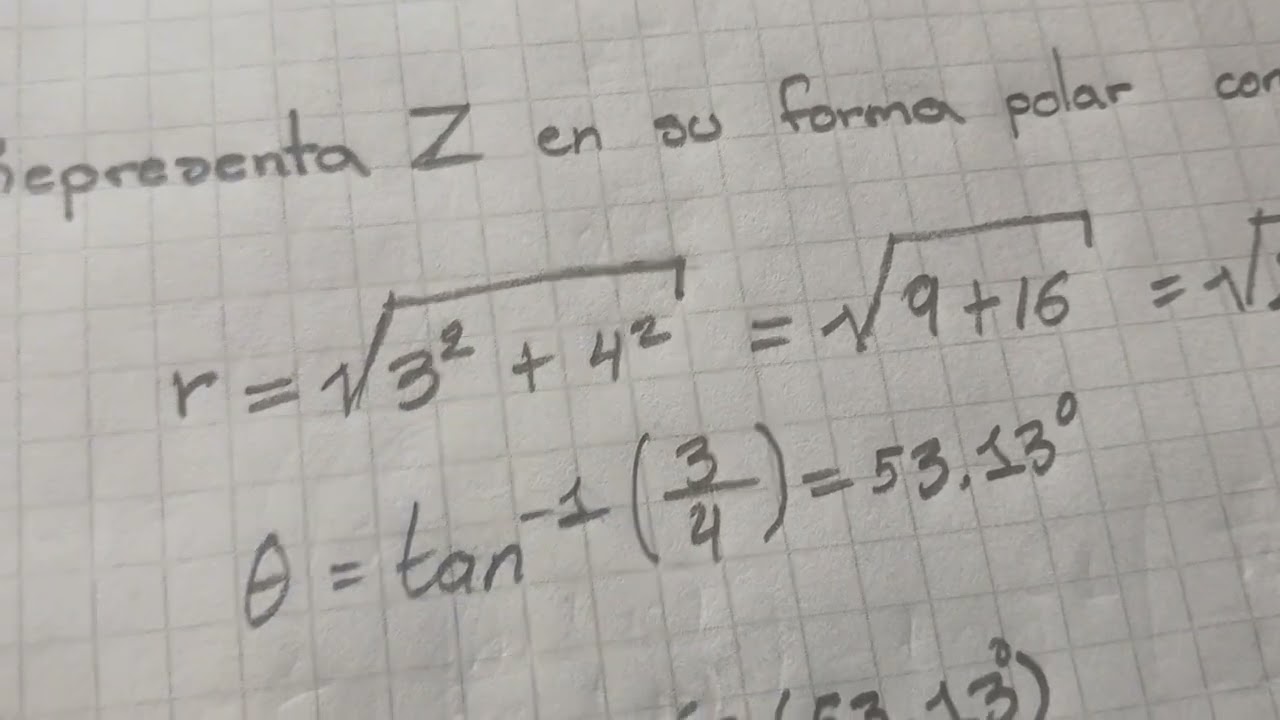 Representa Z en su forma polar con
r = √3² + 4² = √9 + 16 = √
θ = tan⁻¹ (3/4) = 53.13°
(53.13°)